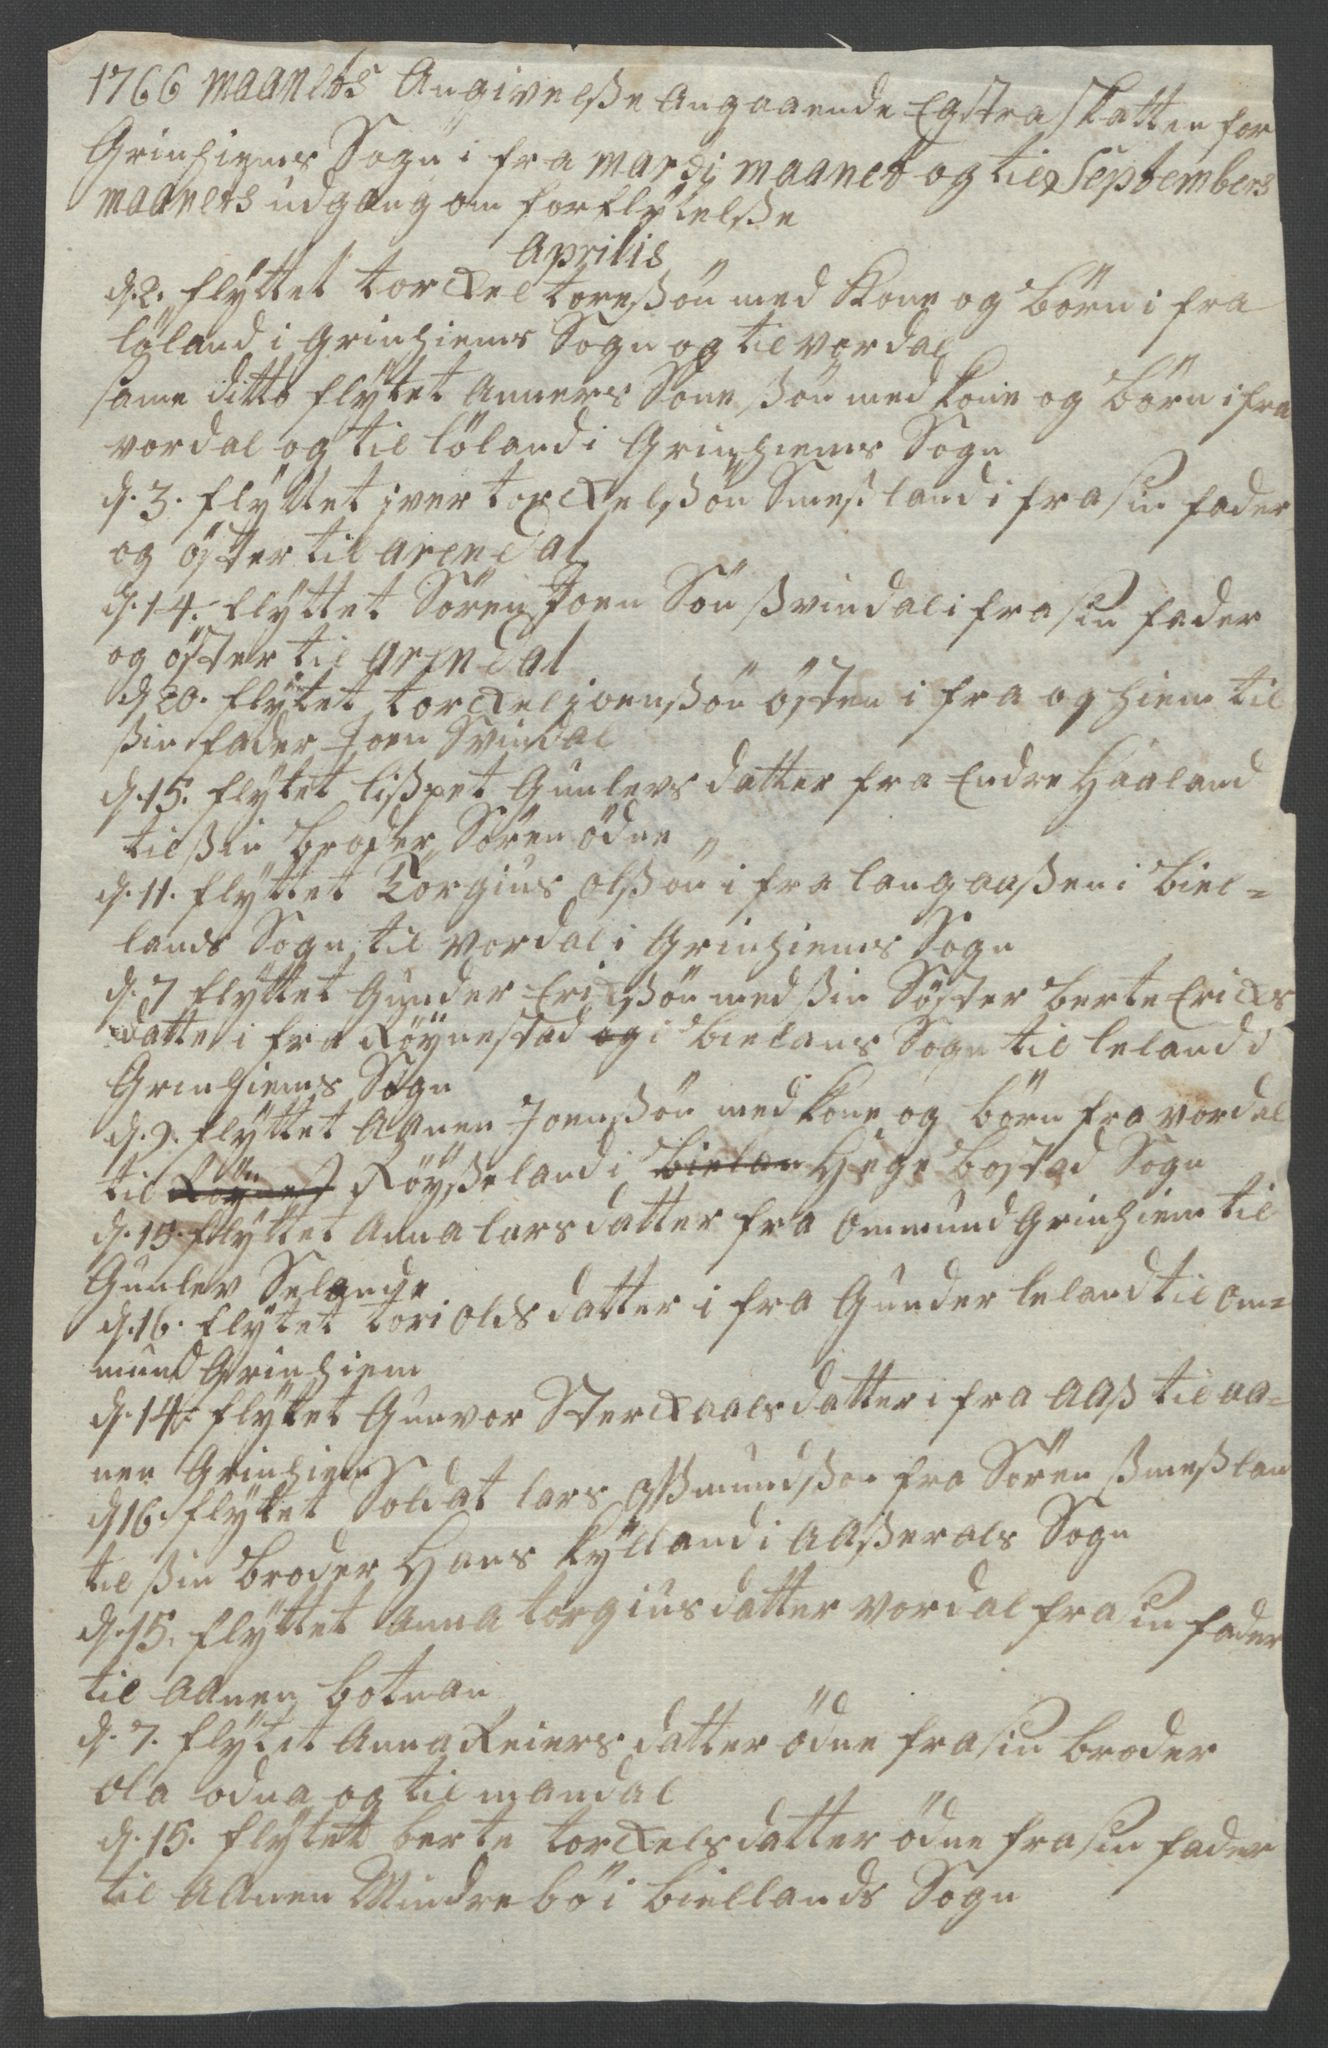 1766 maanets Angivelße Angaaende Egstra Skatten for
Grinhiems Sogn i fra mardj maanet og til Septembers
maanets udgang om forflytelße
Aprilis
d. 2. flyttet torkel toresßön med Kone og börn i fra
löland i Grinhiems Sogn og til vordal
same ditto flytet Anners Sone ßön med Kone og börn i fra
vordal og til löland i Grinhiems Sogn
d. 3. flyttet iver torkelßön Smesland i fra sin fader
og öster til arendal
d. 14. flyttet Sören Joen Sön ßvindal i fra sin fader
og öster til arendal
d 20. flytet torkel joenßön östen i fra og hiem til
ßin fader Joen Svindal
d. 15. flytet lisßpet Gunlevs datter fra Endre Haaland
til ßin broder Sören ödne
d. 11. flyttet Torgius olßön i fra langaaßen i biel=
lands Sogn til vordal i Grinhiems Sogn
d. 7 flyttet Gunder Erikßön med ßin Söster berte Ericks
datter i fra Röynestad og i bielans Sogn til leland i
Grinhiems Sogn
d. 9. flyttet Aanen Joenßön med Kone og börn fra vordal
til Röynest Röyßeland i bielan Hege bostad Sogn
d. 15. flyttet Anna lars datter fra Ommund Grinhiem til
Gunlev Selande
d. 16. flytet tori olds datter i fra Gunder leland til Om=
mund Grinhiem
d. 14. flytet Gunvor Sterkaals datter i fra Aaß til Aa=
nen Grinhiem
d 16. flytet Soldat lars Aßmundßön fra Sören ßmeßlan
til ßin broder Hans Kylland i Aaßerals Sogn
d. 15. flyttet Anna torgius datter vordal fra sin fader
til Aanen botnan
d. 7. flytet Anna Reiers datter ödne fra sin broder
ola odna og til mandal
d. 15. flytet berte torkels datter ödne fra sin fader
til Aanen Mindrebö i biellands Sogn